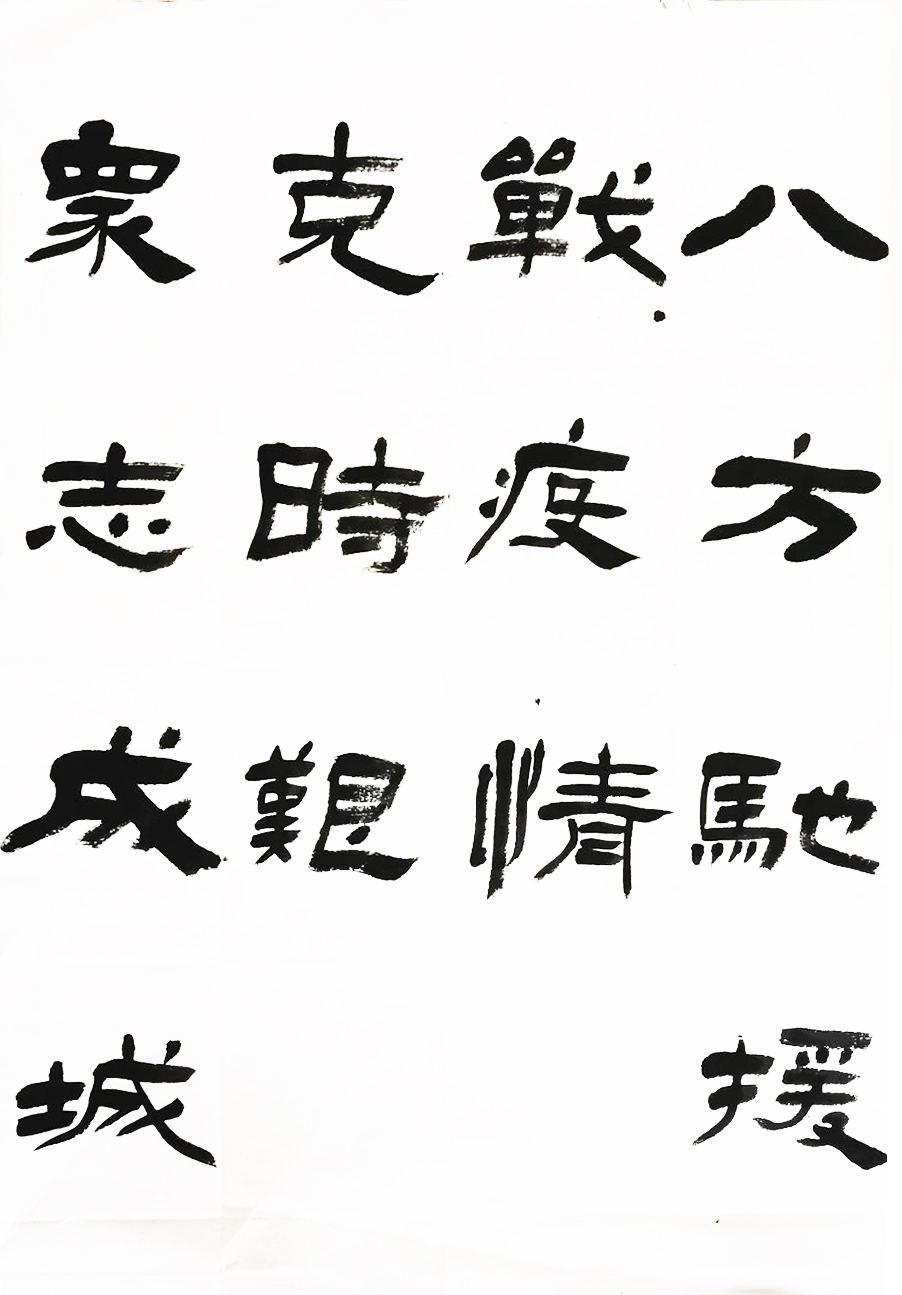 八方馳援
戰疫情
克時艱
眾志成城